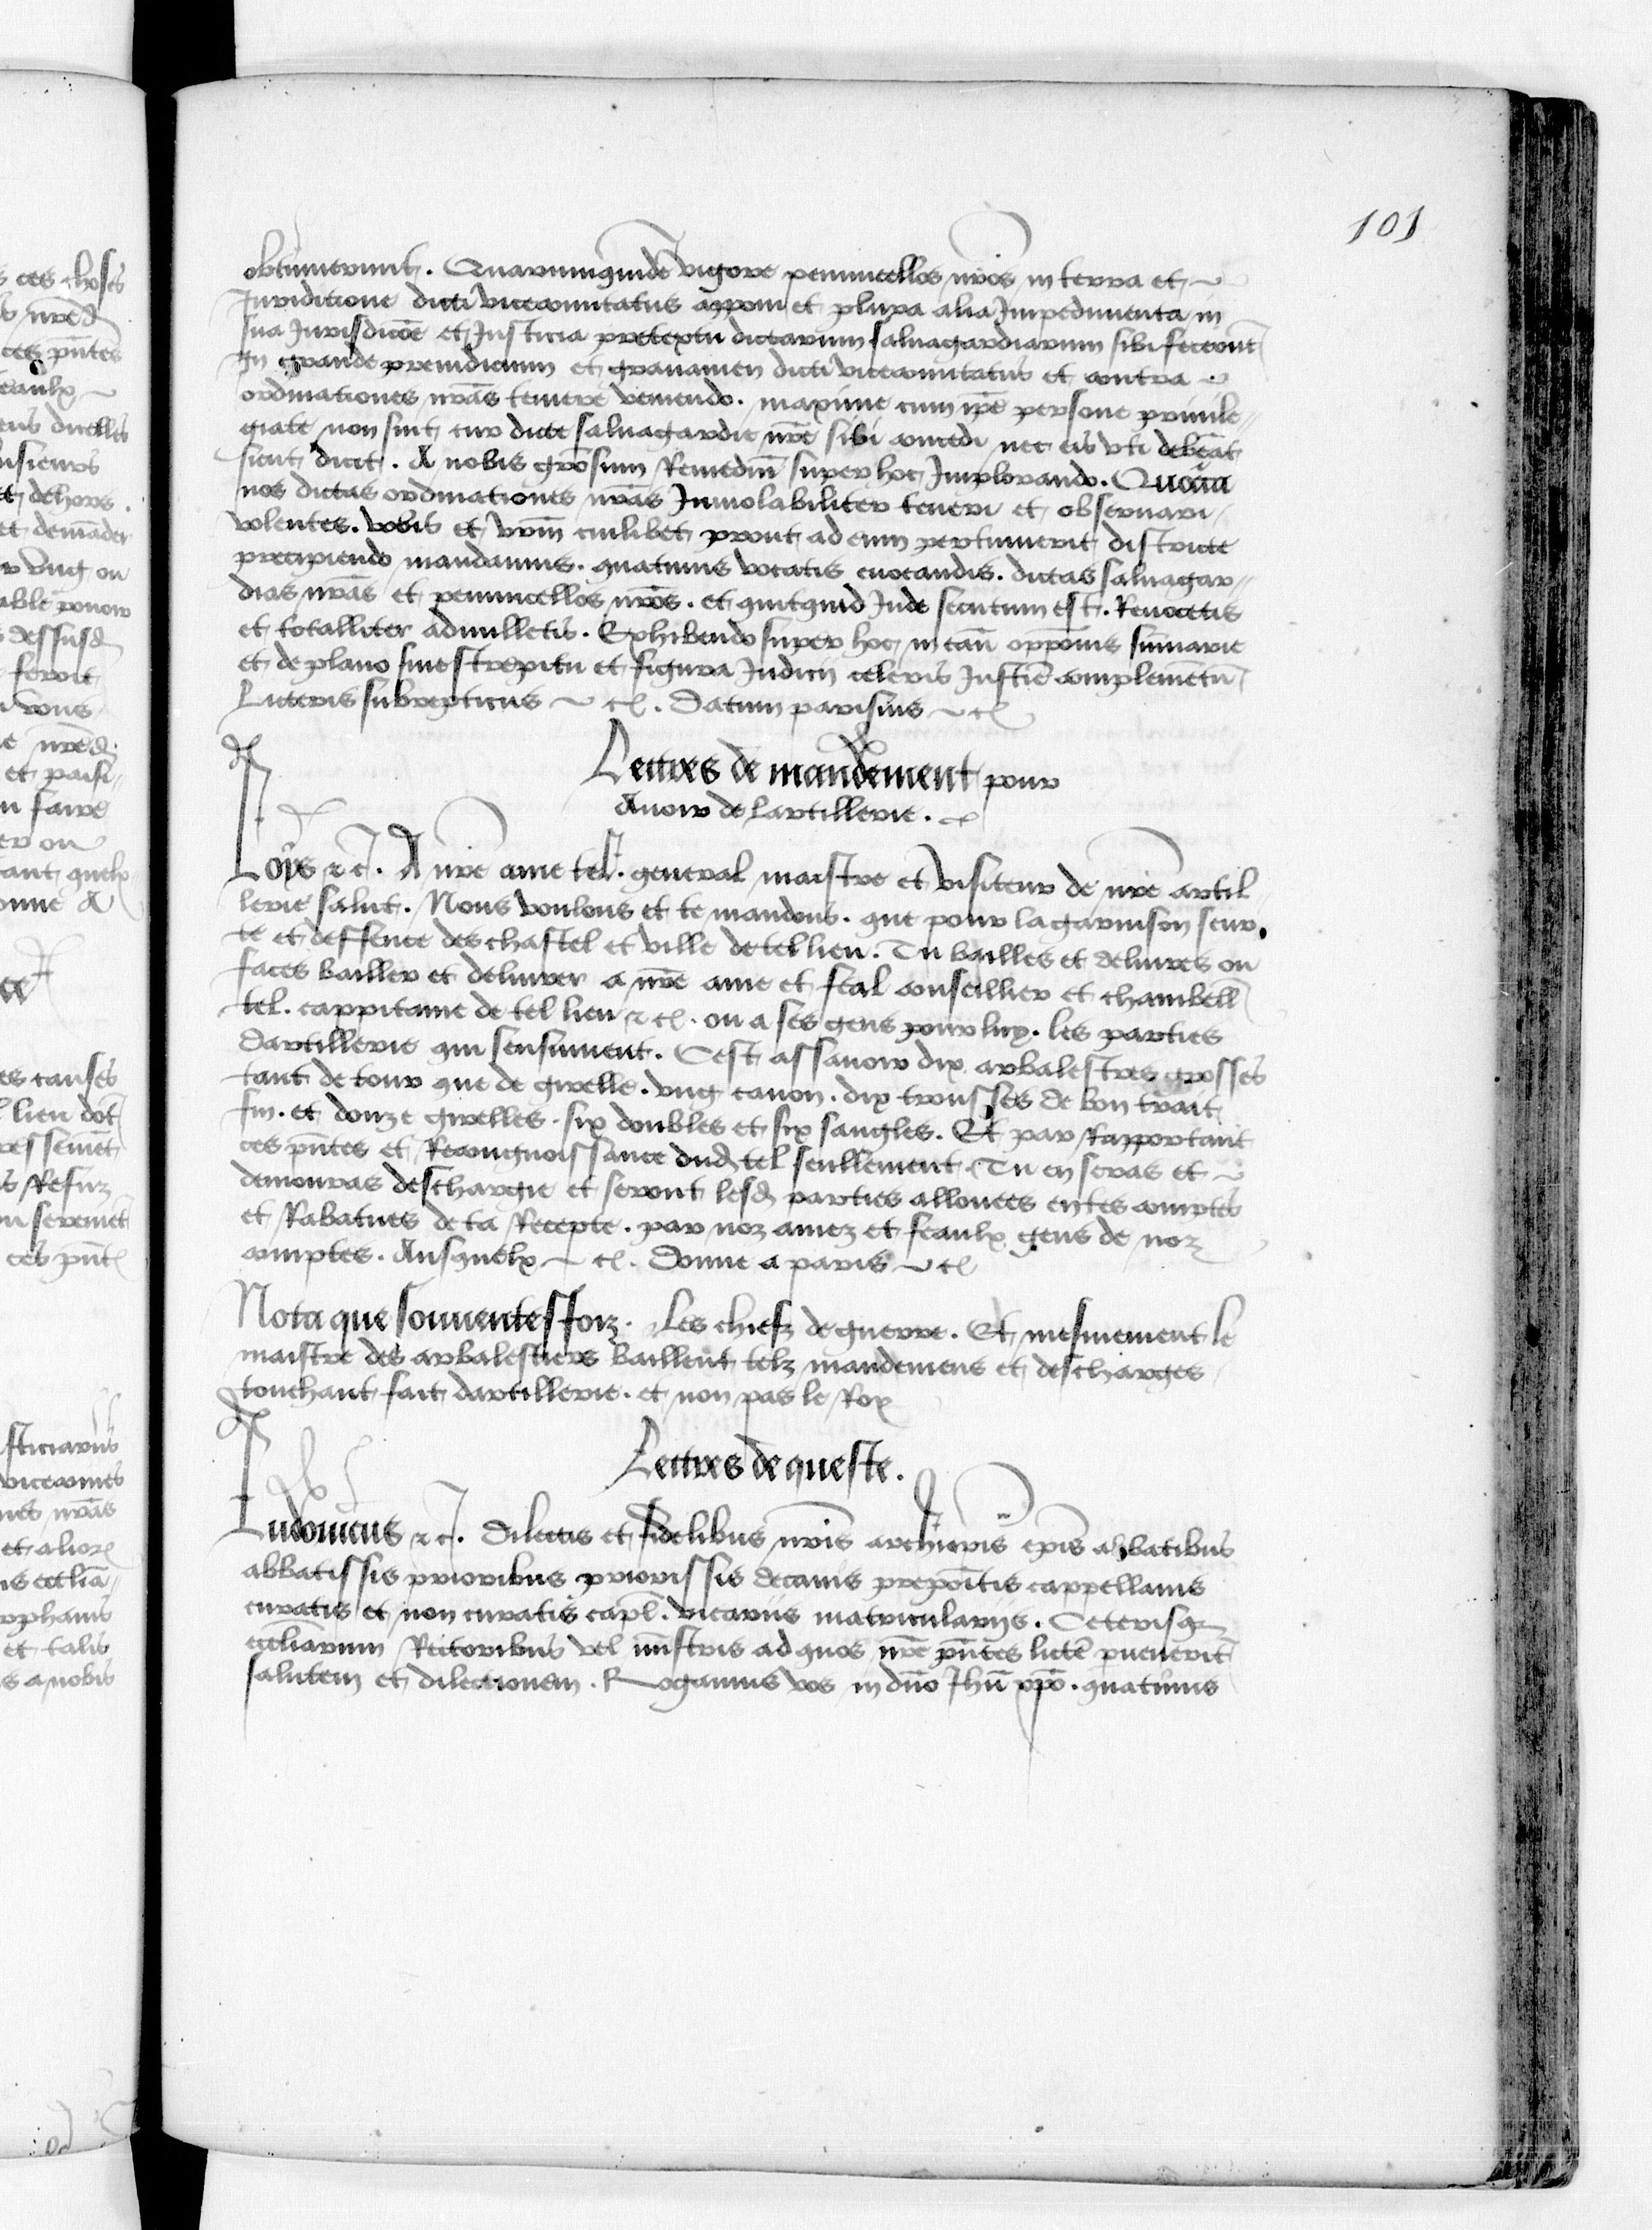 101
obtinuerunt. Quarumquidē vigore pennucellos nr̄os in terra et
Juriditione dicti vicecomitatus apponi et plura alia Jmpedimenta in
sua Jurisdicōe et Justicia pretextu dictarum saluagardiarum sibi fecerūt
In grande preiudicium et grauamen dicti vicecomitatus et contra
ordinationes nr̄as temere veniendo. maxime cum ip̄e persone priuile-
giate non sint cur dicte saluagardie nr̄e sibi concedi nec eis vti debeāt
sicut dicit. A nobis gr̄osum Remediū super hoc Jmplorando. Quocirca
nos dictas ordinationes nr̄as Jnuiolabiliter teneri et obseruari
volentes. vobis et vr̄m cuilibet prout ad eum pertinuerit districte
precipiendo mandamus. quatinus vocatis euocandis. dictas saluagar-
dias nr̄as et pennucellos nr̄os. et quitquid Jnde secutum est. Reuocetis
et totalliter adnulletis. Exhibendo super hoc in cāu oppōnis sūmarie
et de plano sine strepitu et figura Judicii celeris Justic̄ie complemētū
Litteris subrepticiis ~ cꝭ. Datum parisius ~ cꝭ
Lettres de mandement pour
Auoir de lartillerie.
Loys ⁊ cꝭ. A nr̄e ame tel. general maistre et visiteur de nr̄e artil
lerie salut. Nous voulons et te mandons. que pour la garnison seur
te et deffence des chastel et ville de tel lieu. Tu bailles et deliures ou
faces bailler et deliurer a nr̄e ame et feal conseillier et chambell̄
tel. cappitaine de tel lieu ⁊ cꝭ. ou a ses gens pour luy. les parties
dartillerie qui sensuiuent. Cest assauoir dix arbalestres grosses
tant de tour que de girelle. vng canon. dix trousses de bon trait
fin. et douze girelles. six doubles et six sangles. Et par Rapportant
ces pn̄tes et Recongnoissance dud̄ tel seullement Tu en seras et
demourras deschargie et seront lesd̄ parties allouees en tes comptes
et Rabatues de ta Recepte. par noz amez et feaulx gens de noz
comptes. Ausquelx ~ cꝭ. Donne a paris ~ cꝭ
Nota que souuentesfoiz. Les chiefz de guerre. Et mesmement le
maistre des arbalestiers baillent telz mandemens et descharges
touchant fait dartillerie. et non pas le Roy
Lettres de queste.
Ludouicus ⁊ cꝭ. Dilectis et fidelibus nr̄is archiep̄is ep̄is abbatibus
abbatissis prioribus priorissis decanis prepōitis cappellanis
curatis et non curatis capl̄. vicariis matriculariis. Ceterisqꝫ
eccl̄iarum Rectoribus vel mīstris ad quos nr̄e pn̄tes litte puenerīt
salutem et dilectionem. Rogamus vos in dn̄o Jhū xp̄o. quatinus